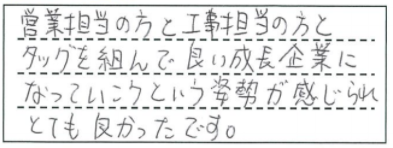 営業担当の方と工事担当の方と
タッグを組んで良い成長企業に
なっていこうという姿勢が感じられ
とても良かったです。